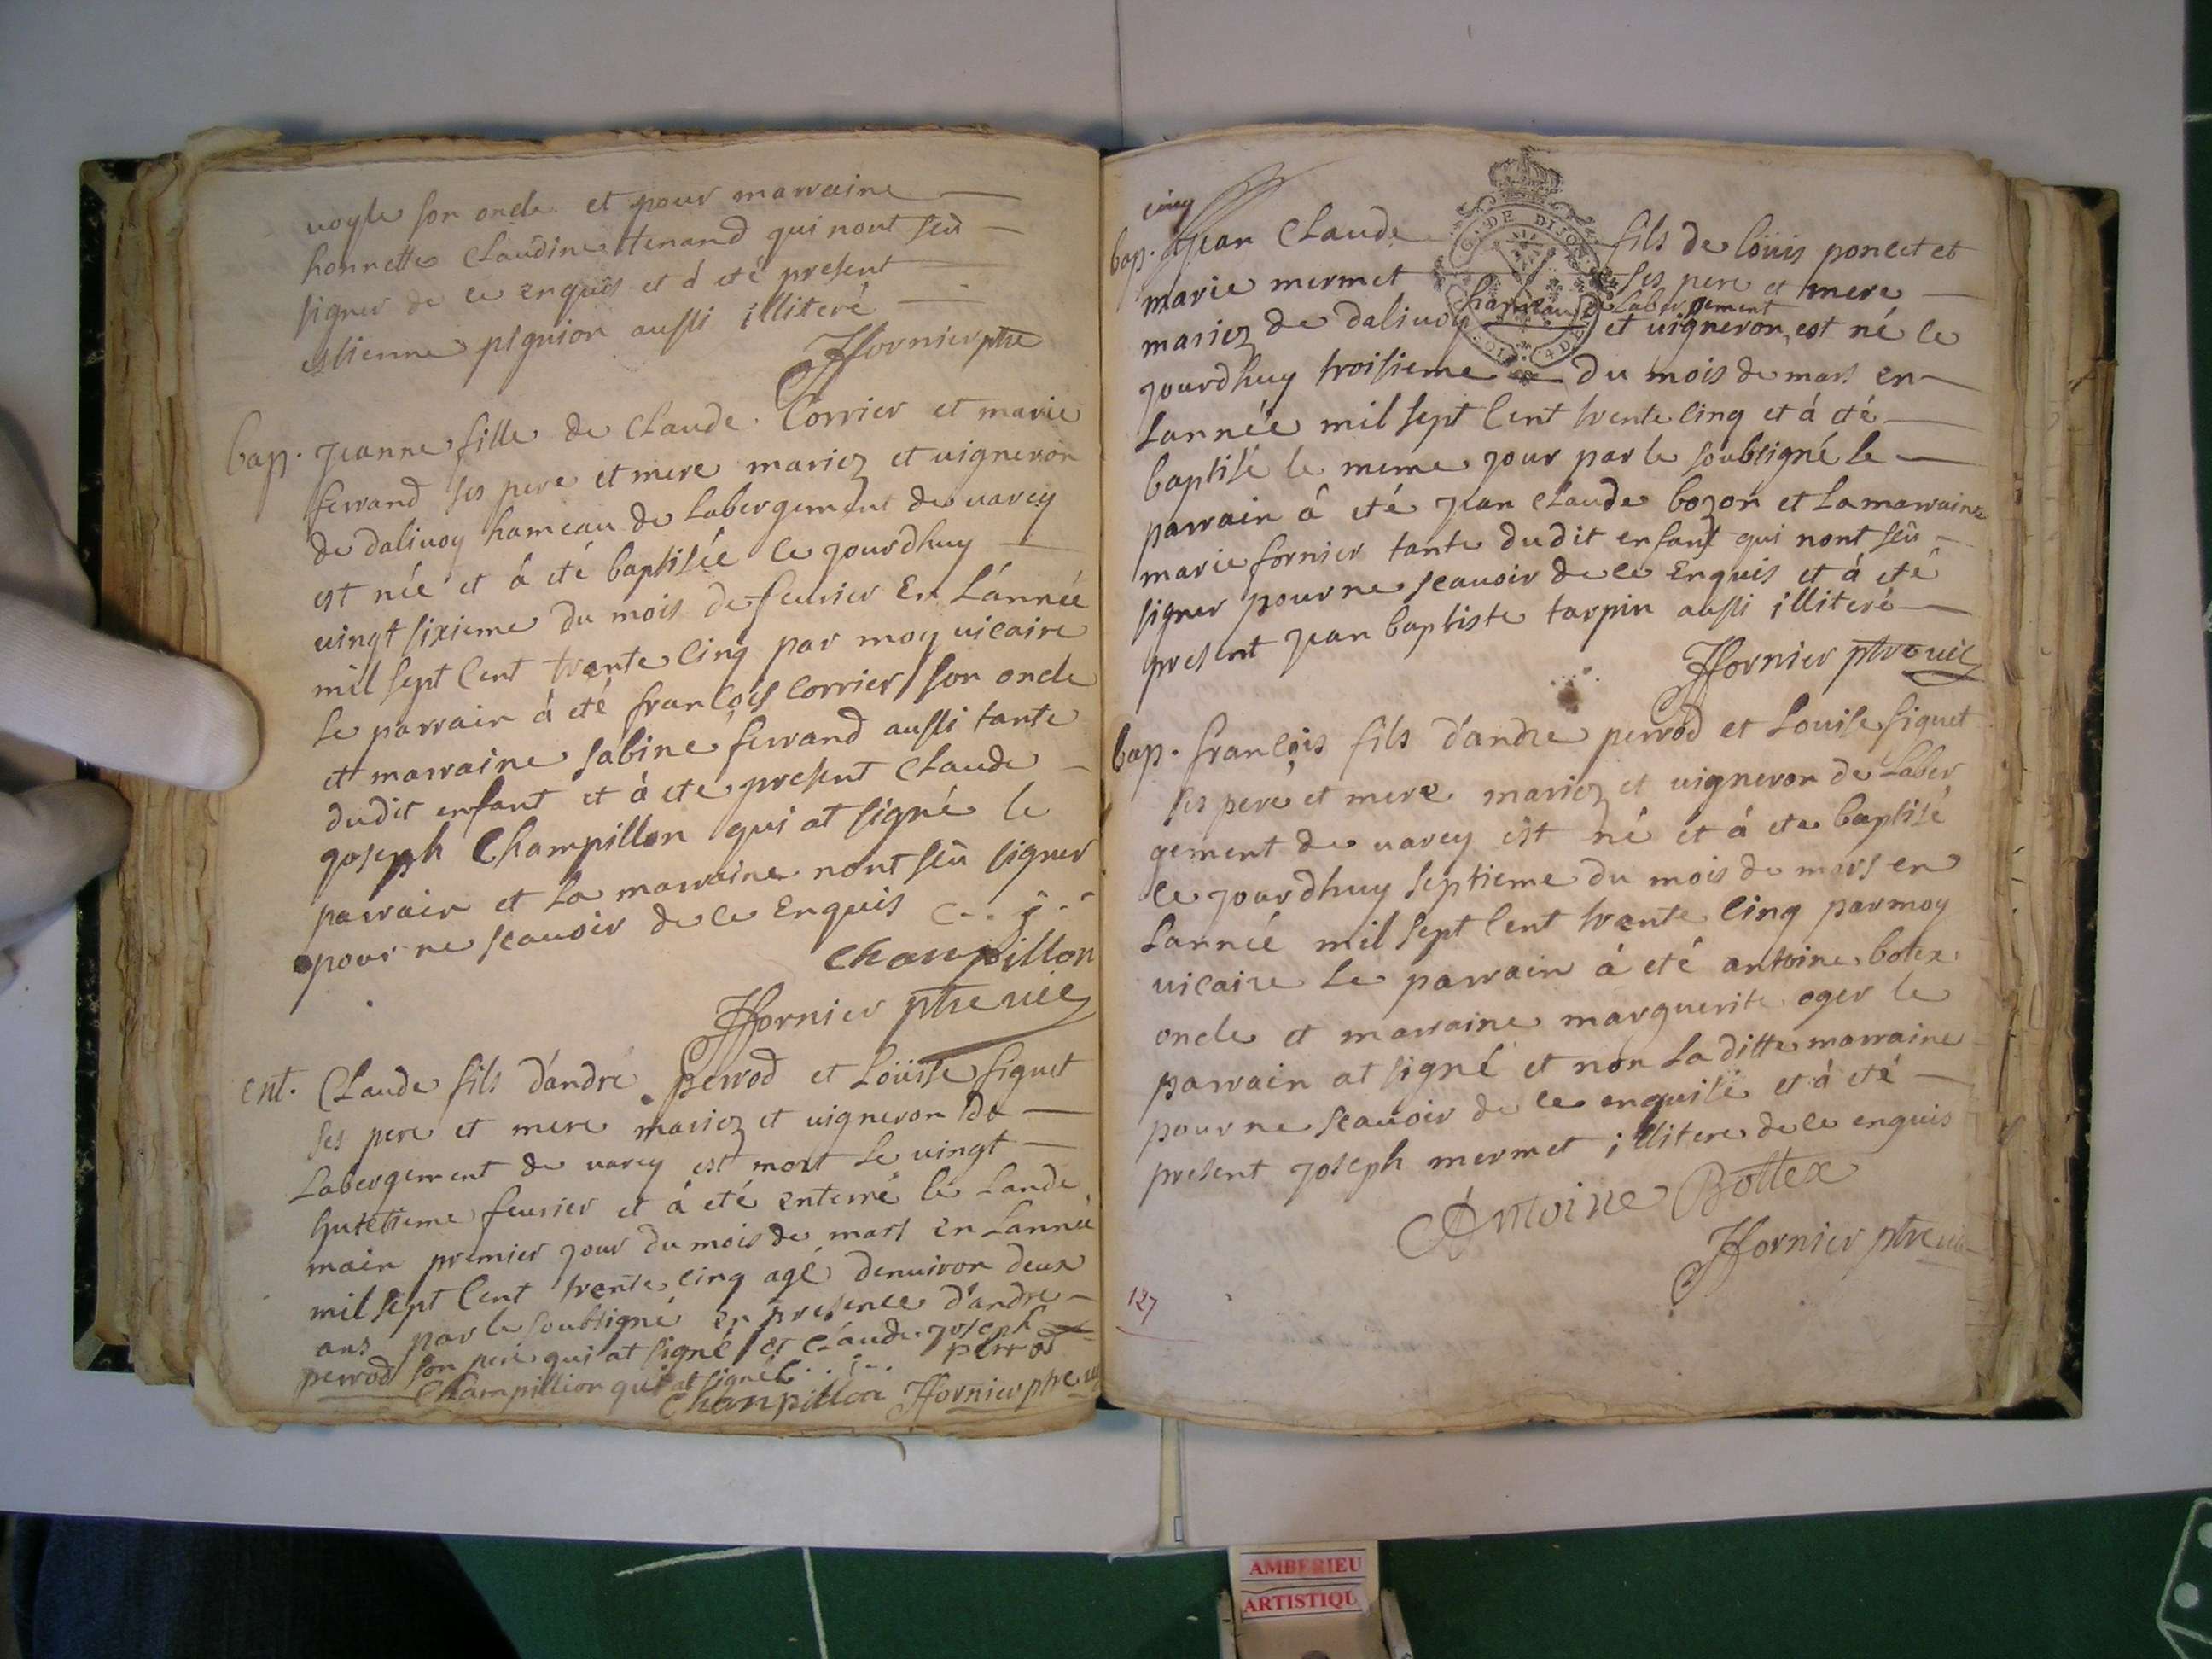 uoyle son oncle et pour marraine
honnette Claudine tenand qui nont sçû
signer de ce enquis et á eté present
estienne pignion aussi illiteré
Jfornier ptre
bap. Jeanne fille de Claude Corrier et marie
ferrand ses pere et mere mariez et uigneron
de daliuoy hameau de Labergement de uarey
est née et á eté baptisée le jourdhuy
uingt sixieme du mois de feurier En L'année
mil sept Cent trente cinq par moy uicaire
Le parrain á eté francois Corrier son oncle
et marraine sabine ferrand aussi tante
dudit enfant et á ete present Claude
joseph Champillon qui at signé le
parrain et La marraine nont sçû signer
pour ne scauoir de ce Enquis C.. j..
Champillon
Jfornier ptre uic
ent. Claude fils d'andre perrod et Loüise siguet
ses pere et mere mariez et uigneron de
Labergement de uarey est mort le uingt
huitetieme feurier et á eté enterré le Lande
main premier jour du mois de mars en Lannée
mil sept Cent trente cinq agé denuiron deux
ans par le soubsigné en presence d'andre
perrod son pere qui at signé et Claude joseph
perrod
Champillion qui at signé C.. j..
Champillon Jfornier ptre uic
cinq
G. DE DIJON
bap. Jean Claude fils de loüis poncet et
marie mermet ses pere et mere
hameau de Labergement
mariez de daliuoy et uigneron est né le
jourdhuy troisieme du mois de mars en
Lannée mil sept Cent trente cinq et á eté
baptisé le meme jour par le soubsigné le
parrain á eté jean Claude bozon et La marraine
marie fornier tante dudit enfant qui nont sçû
signer pour ne scauoir de ce Enquis et á eté
present jean baptiste tarpin aussi illiteré
Jfornier ptre uic
bap. francois fils d'andre perrod et Louise siguet
ses pere et mere mariez et uigneron de Laber
gement de uarey est né et á ete baptisé
le jourdhuy septieme du mois de mars en
Lannée mil sept Cent trente cinq par moy
uicaire Le parrain á eté antoine botex
oncle et marraine marguerite oger le
parrain at signé et non La ditte marraine
pour ne scauoir de ce enquise et á eté
present joseph mermet illitere de ce enquis
Antoine Bottex
Jfornier ptre uic
127
AMBERIEU
ARTISTIQU